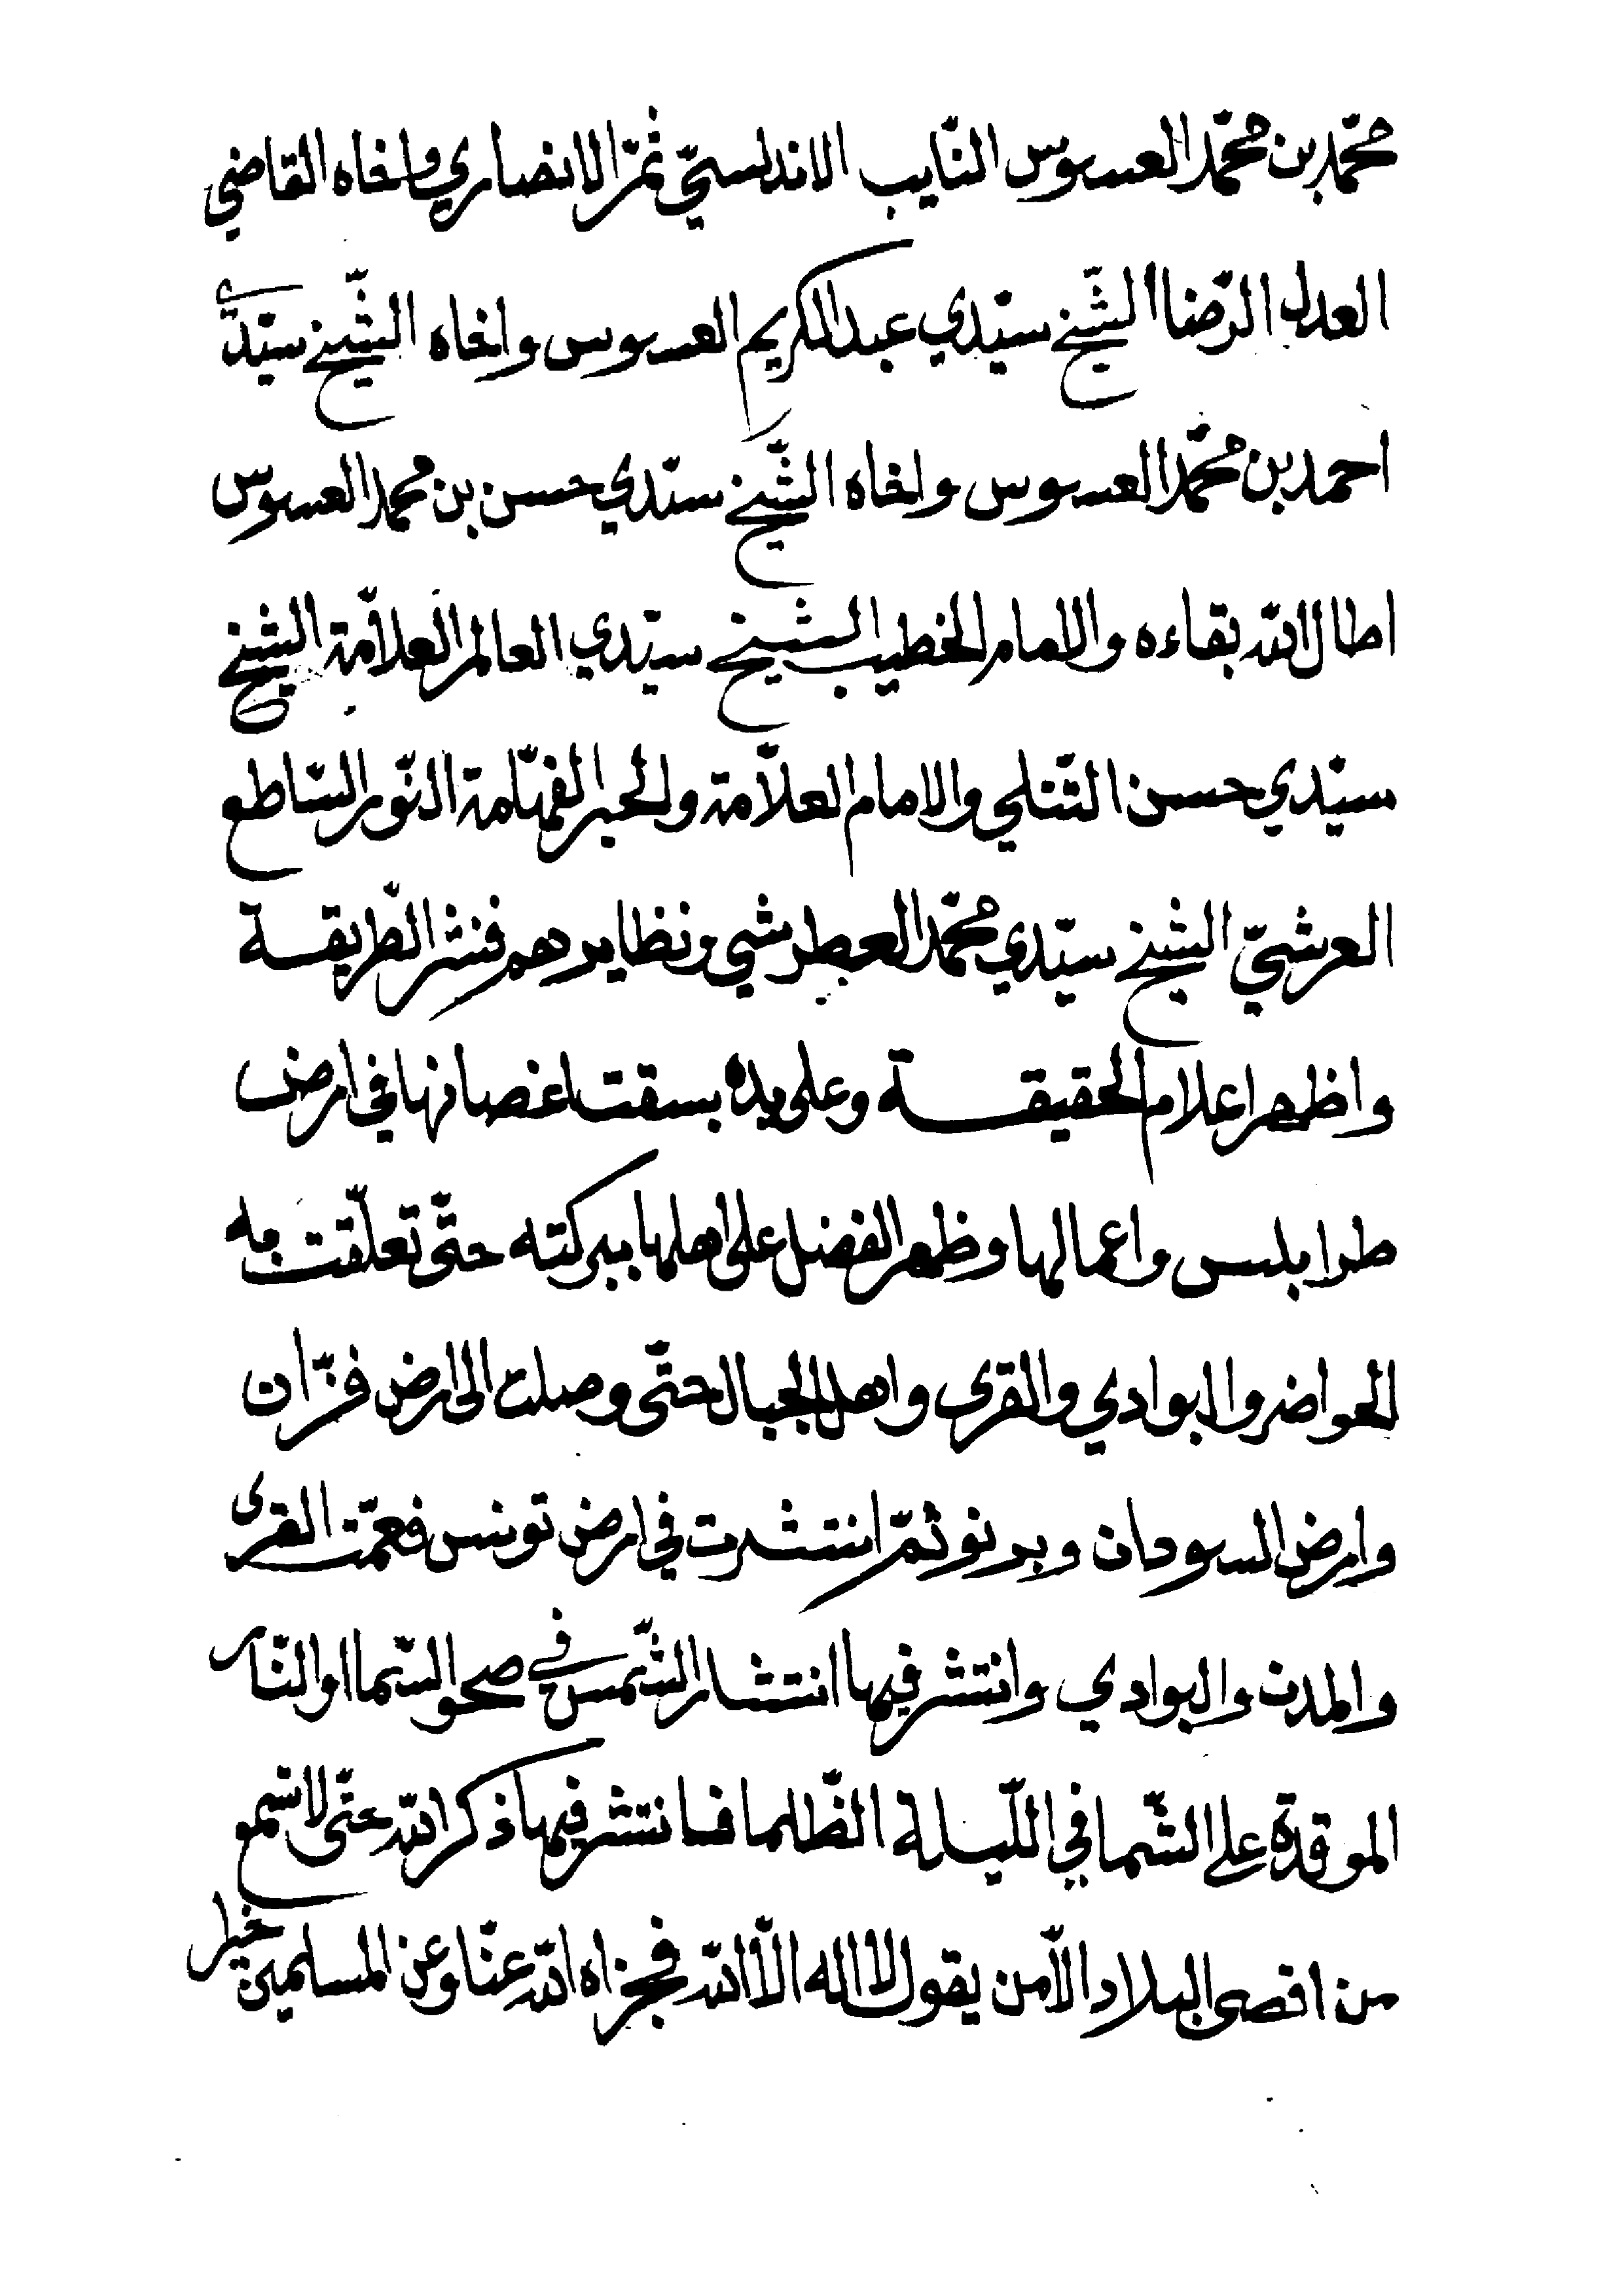 محمّد بن محمّد العسوس النّايب الاندلسيّ ثمّ الانصاري واخاه القاضي
العدل الرّضا الشّيخ سيّدي عبد الكريم العسوس واخاه الشّيخ سيّدي
احمد بن محمّد العسوس واخاه الشّيخ سيّدي حسن بن محمد العسوس
اطال الله بقاءه والامام الخطيب الشيخ سيّدي العالم العلاّمة الشيخ
سيّدي حسن والامام العلاّمة والحبر الفهّامة النّور السّاطع
العرشيّ الشيخ سيّدي محمّد ونظايرهم فنشر الطّريقة
واظهر اعلام الحقيقة وعلى يده بسقت اغصانها في ارض
طرابلس واعمالها وظهر الفضل على اهلها ببركته حتّى تعلّقت به
الحواضر والبوادي والقرى واهل الجبال حتّى وصلت الى ارض فزّان
وارض السودان وبرنو ثمّ انتشرت في ارض تونس فعمّت القرى
والمدن والبوادي وانتشر فيها انتشار الشّمس في صحو السّما او النّار
الموقدة على الشّما في اللّيلة الظّلما فانتشر فيها ذكر الله حتّى لا تسمع
من اقصى البلاد الاّ من يقول لا اله الاّ الله فجزاه الله عنّا وعن المسلمين خيرا